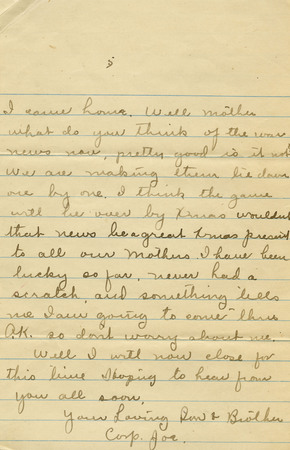 I come home. Well Mother
what do you think of the war
news now, pretty good is it not
We are making them lie down
one by one. I think the game
will be over by Xmas wouldnt
that news be a great Xmas present
to all our Mothers. I have been
lucky so far, never had a
scratch, and something tells
me I am going to come thru
O.K. so dont worry about me.
Well I will now close for
this time Hoping to hear from
you all soon,
Your Loving Son & Brother
Corp. Joe.